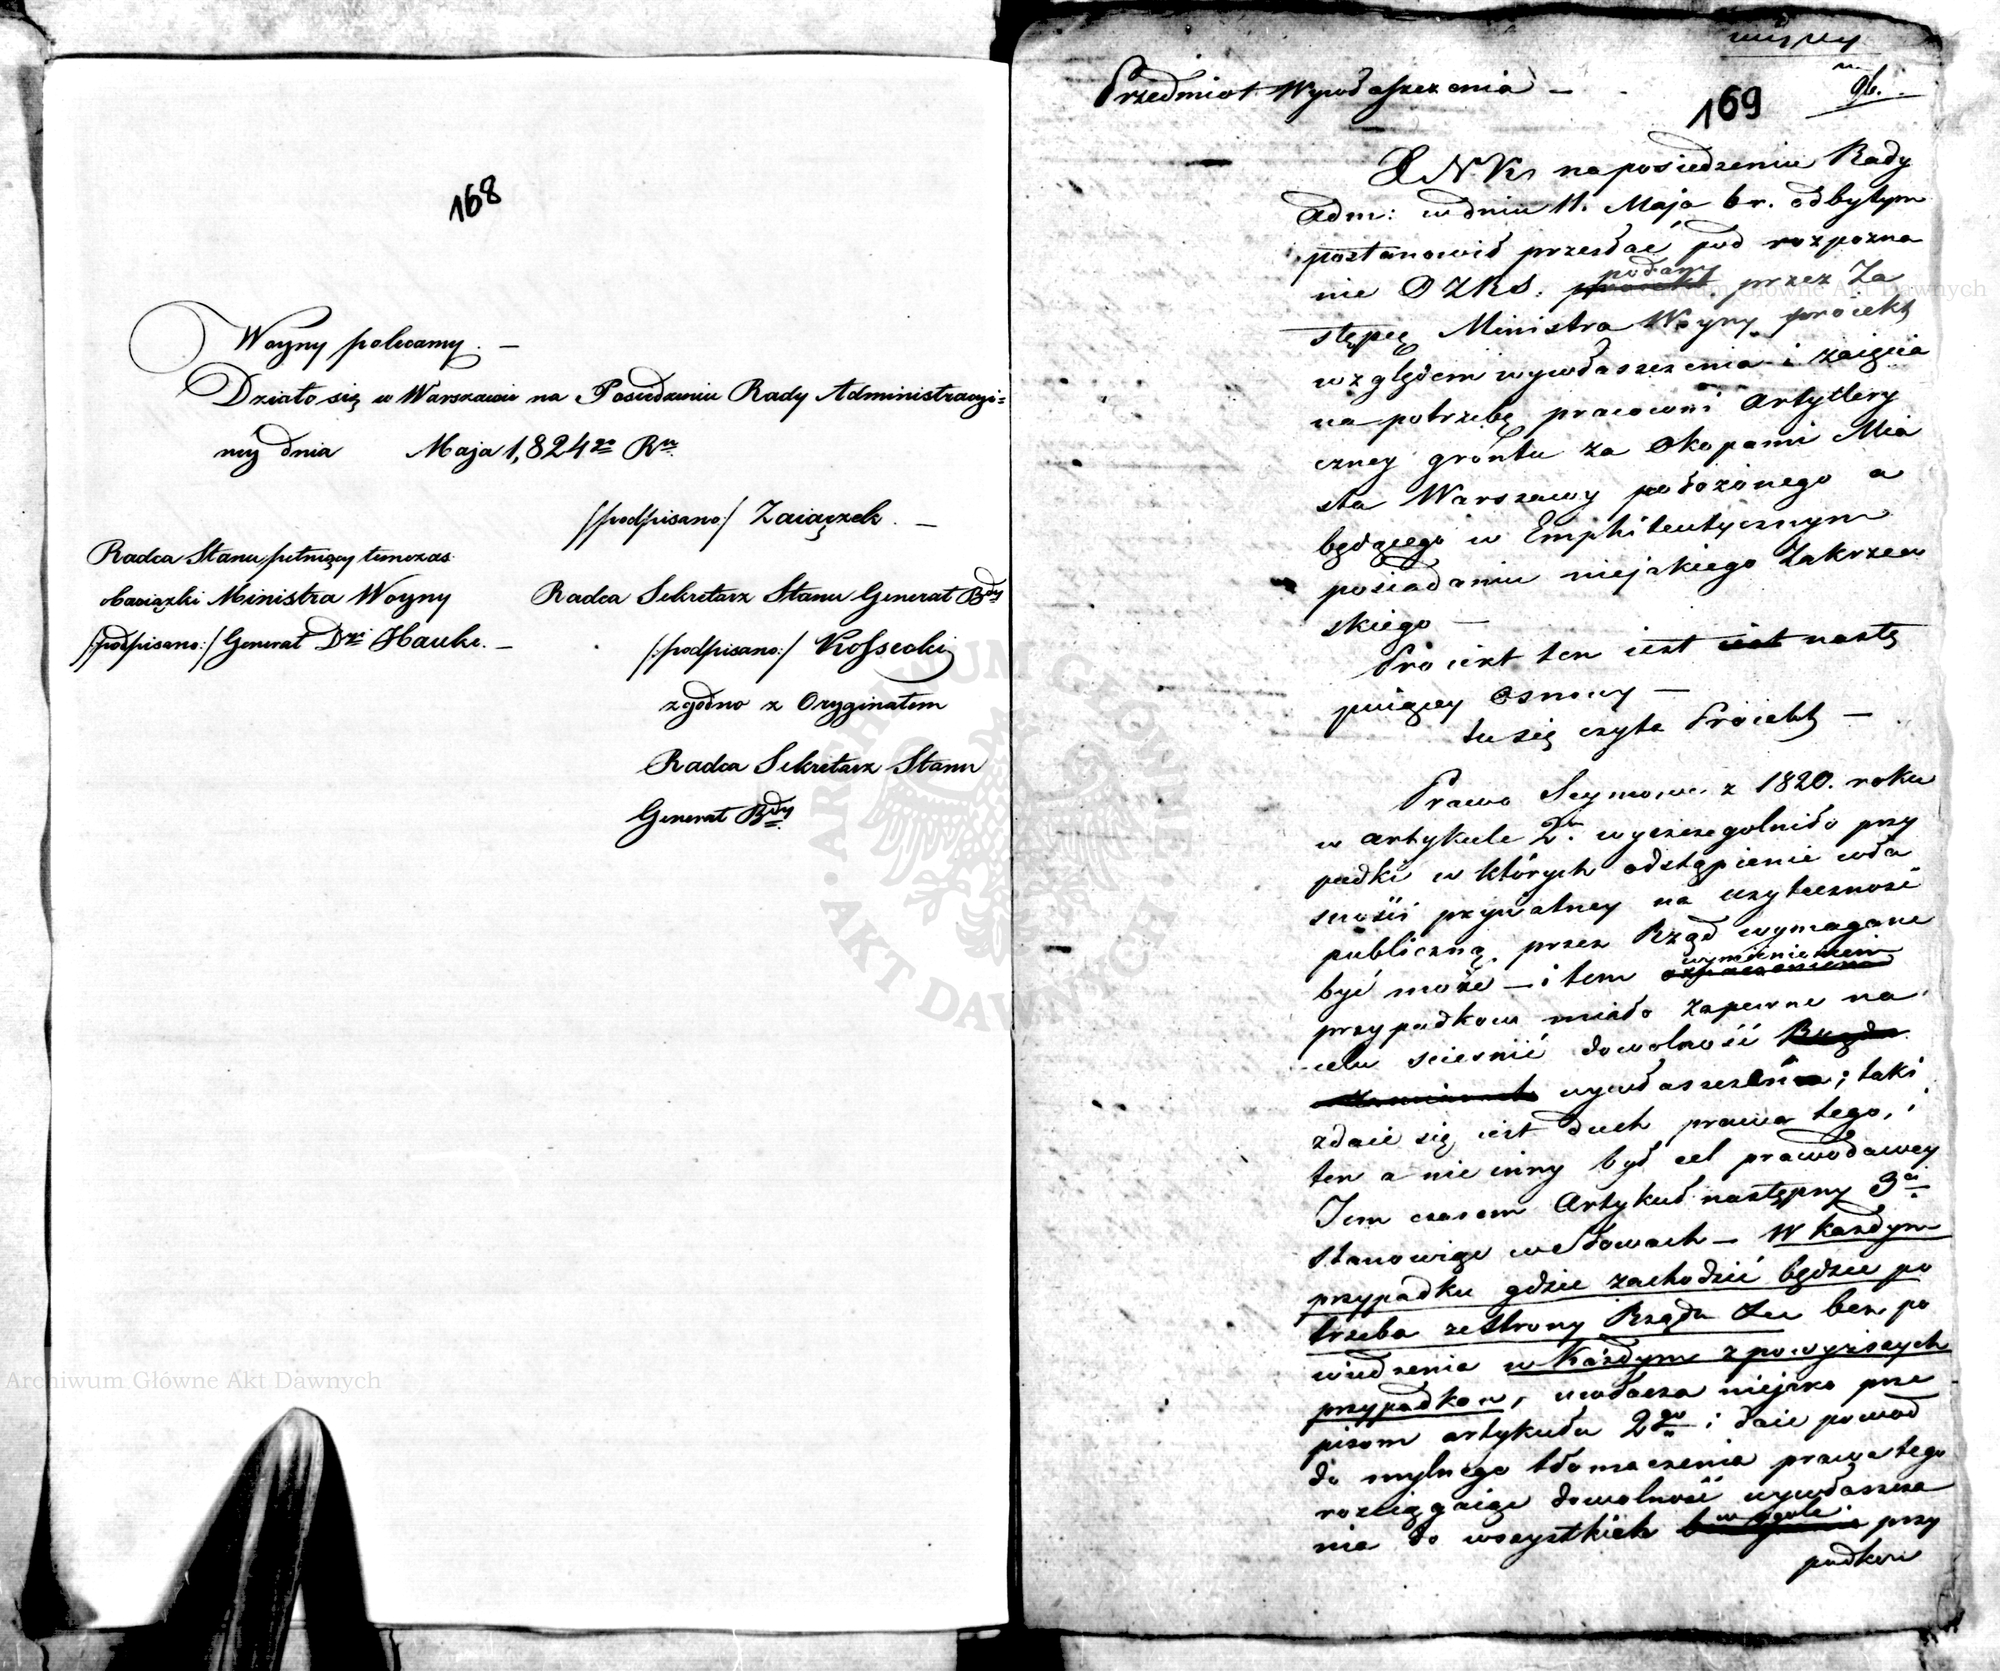 168
Woyny polecamy. —
Działo się w Warszawie na Posiedzeniu Rady Administracyi=
ney dnia Maja 1,824go Ru
/podpisano:/ Zaiączek. —
Radca Stanu pełniący tymczas:
obowiązki Ministra Woyny
/:podpisano:/ Generał Dyi Hauke. —
Radca Sekretarz Stanu Generał Bdy
/:podpisano:/ Kossecki
zgodno z Oryginałem
Radca Sekretarz Stanu
Generał Bdy
Przedmiot Wywłaszczenia —
96.
169
X N Kr na posiedzeniu Rady
Adm: w dniu 11. Maja b r. odbytym
postanowił przesłać pod rozpozna
nie OZKS: podany przez Za
stępcę Ministra Woyny proiekt
względem wywłaszczenia i zaięcia
na potrzebę pracowni Artylery
czney gruntu za Okopami Mia
sta Warszawy położonego a
będącego w Emphiteutycznym
posiadaniu niejakiego Zakrzew
skiego —
Proiekt ten iest iest nastę
puiącey Osnowy —
tu się czyta Proiekt —
Prawo Seymowe z 1820. roku
w artykule 2m wyszczegolniło przy
padki w których odstąpienie wła
sności prywatney na użyteczność
publiczną przez Rząd wymagane
być może — i tem wymienieniem
przypadkow miało zapewne na
celu ścieśnić dowolność Rządu
wywłaszczenia; taki
zdaie się iest duch prawa tego, i
ten a nie inny był cel prawodawcy
Tem czasem Artykuł następny 3ci
stanowiąc w słowach — W każdym
przypadku gdzie zachodzić będzie po
trzeba ze strony Rządu bez po
wiedzenia w każdym z powyższych
przypadkow, uwłacza niejako prze
pisom artykułu 2go i daie powod
do mylnego tłomaczenia prawa tego
rozciągaiąc dowolność wywłaszcze
nia do wszystkich w ogole przy
padkow
Archiwum Główne Akt Dawnych
Archiwum Główne Akt Dawnych
ARCHIWUM GŁÓWNE · AKT DAWNYCH ·